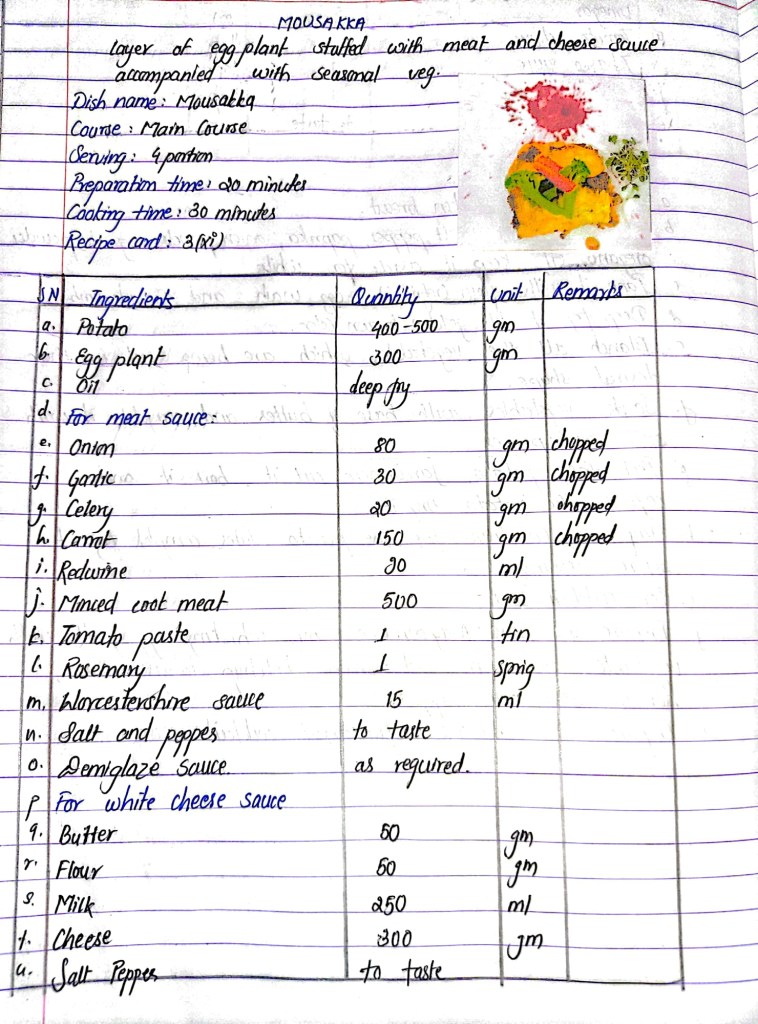 MOUSAKKA
layer of egg plant stuffed with meat and cheese sauce.
accompanied with seasonal veg.
Dish name: Mousakka
Course: Main Course
Serving: 4 portion
Preparation time: 20 minutes
Cooking time: 30 minutes
Recipe card: 3(xi)
SN Ingredients Quantity Unit Remarks
a. Potato 400-500 gm
b. Egg plant 300 gm
c. Oil deep fry
d. For meat sauce:
e. Onion 80 gm chopped
f. Garlic 30 gm chopped
g. Celery 20 gm chopped
h. Carrot 150 gm chopped
i. Redwine 20 ml
j. Minced coot meat 500 gm
k. Tomato paste 1 tin
l. Rosemary 1 sprig
m. Worcestershire sauce 15 ml
n. Salt and pepper to taste
o. Demiglaze sauce. as required.
p For white cheese sauce
q. Butter 50 gm
r. Flour 50 gm
s. Milk 250 ml
t. Cheese 300 gm
u. Salt Pepper to taste